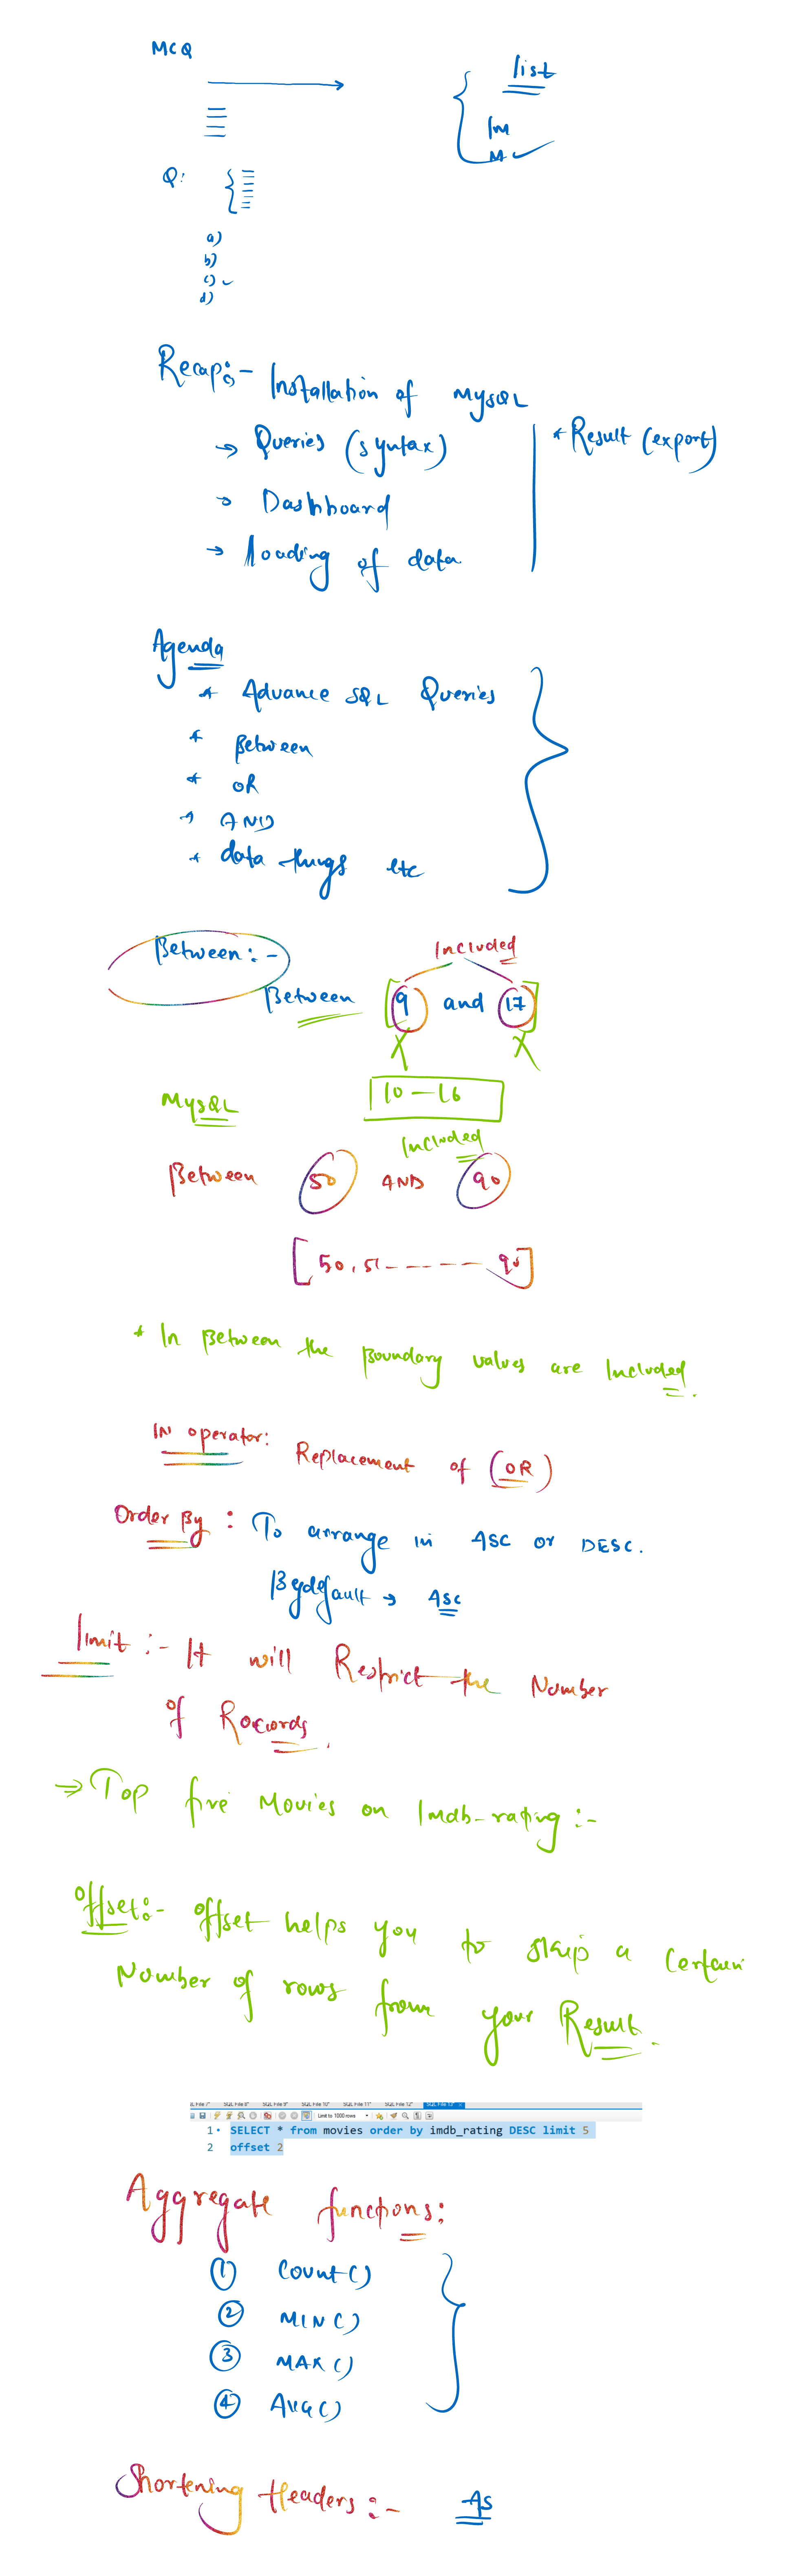 MCQ
list
Im
M
Q:
a)
b)
c)
d)
Recap:- Installation of MySQL
→ Queries (syntax)
* Result (export)
→ Dashboard
→ loading of data
Agenda
* Advance SQL Queries
* Between
* OR
* AND
* data things etc
Between:-
Included
Between 9 and 17
10-16
MySQL
Included
Between 50 AND 90
[50, 51 ------ 90]
* In Between the Boundary values are Included.
IN operator: Replacement of (OR)
Order By: To arrange in ASC or DESC.
Bydefault → Asc
limit:- It will Restrict the Number
of Records.
⇒ Top five Movies on Imdb-rating:-
Offset:- Offset helps you to skip a certain
Number of rows from your Result.
SQL File 8* SQL File 9* SQL File 10* SQL File 11* SQL File 12*
Limit to 1000 rows
1 SELECT * from movies order by imdb_rating DESC limit 5
2 offset 2
Aggregate functions:
① Count()
② MIN()
③ MAX()
④ AVG()
Shortening Headers:- As